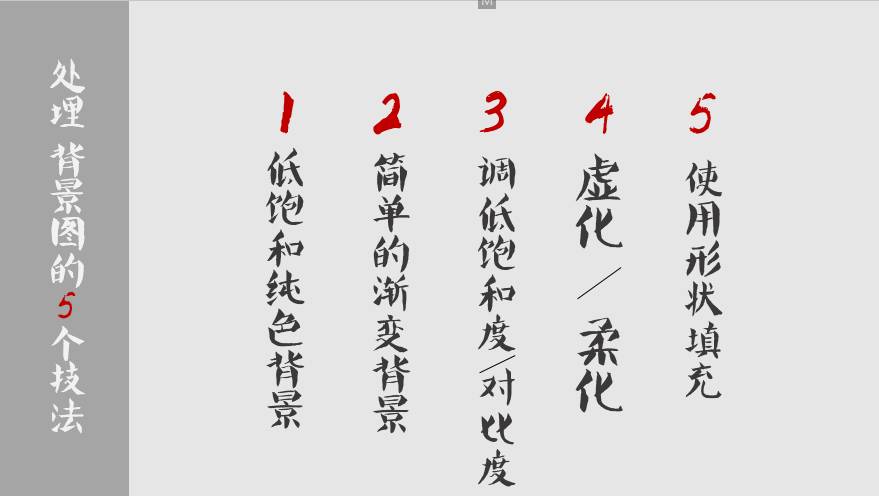 处理 背景图的5个技法
1
低饱和纯色背景
2
简单的渐变背景
3
调低饱和度/对比度
4
虚化/柔化
5
使用形状填充
M